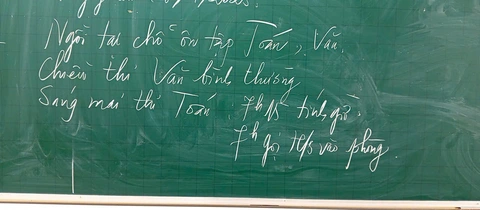 Ngồi tại chỗ ôn tập Toán, Văn.
Chiều thi Văn bình thường
Sáng mai thi Toán. 7h15 tính giờ.
7h gọi H/s vào phòng.